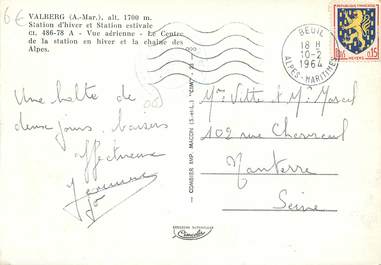 6€
VALBERG (A.-Mar.), alt. 1700 m.
Station d'hiver et Station estivale
ci. 486-78 A - Vue aérienne - Le Centre
de la station en hiver et la chaîne des
Alpes.
Une halte de
deux jours. baisers
affectueux
COMBIER IMP. MACON (S.-et-L.) "CIM"
BEUIL
18 H
10-2
1964
ALPES-MARITIMES
REPUBLIQUE FRANÇAISE
POSTES
0,15
NEVERS
Mme Vitte et M. Marcel
102 rue Chevreul
Nanterre
Seine
Combier